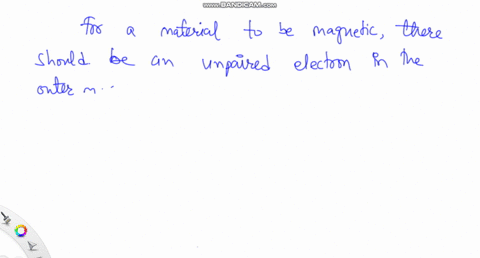 www.BANDICAM.com
For a material to be magnetic, there
should be an unpaired electron in the
outer